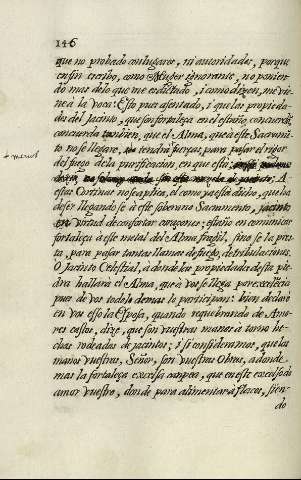 146
que no probado con lugares, ni autoridades, porque
en fin escribo, como Muger ignorante, no ponien-
do mas delo que me en dictado, i como dizen, me vie-
ne a la voca: Esto pues asentado, i que las propieda-
des del Jacinto, que son fortaleza en el estaño, concuerde,
concuerda tambien, que el Alma, que à este Sacramen-
to no se llegare, tendrà fuerças, para pasar el rigor
del fuego de la purificacion, en que està:
A
estas Cortinas no se aplica, el como ya està dicho, que ha
de ser llegandose à este soberano Sacramento, jacinto
en virtud de confortar coraçones; estaño en comunicar
fortaleza à este metal del Alma fragil, sino se la pres-
ta, para pasar tantas llamas de fuego, de tribulaciones.
O Jacinto Celestial, à donde las propiedades desta pie-
dra hallarà el Alma, que à vos se llega por excelencia
pues de vos todo lo demas lo participan: bien declarò
en vos esso la Esposa, quando requebrando de Amo-
res castos, dize, que son vuestras manos à torno he-
chas rodeadas de jacintos; i si consideramos, que las
manos vuestras, Señor, son vuestras Obras, adonde
mas la fortaleza excelsa campea, que en este excesso de
amor vuestro, donde para alimentar à flacos, sien-
do